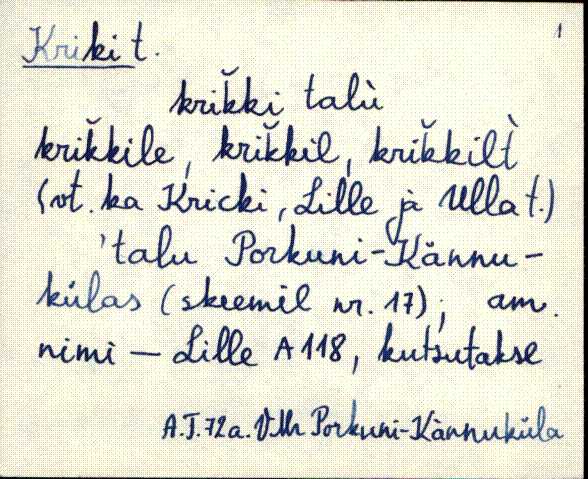 1
Kriki t.
krik̆ki talù
krik̆kile, krik̆kil, krik̆kilt̀
(vt. ka Kricki, Lille ja Ulla t.)
'talu Porkuni-Kännu-
külas (skeemil nr. 17); am.
nimi — Lille A118, kutsutakse
A.J.72a. VMr Porkuni-Kännuküla